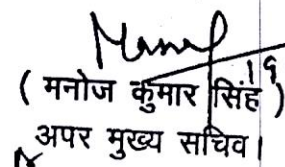 ( मनोज कुमार सिंह )
अपर मुख्य सचिव।